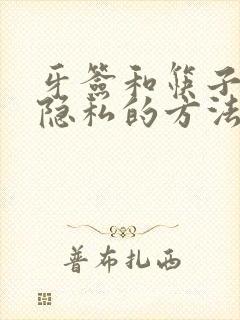 牙签和筷子
隐私的方法
普布扎西